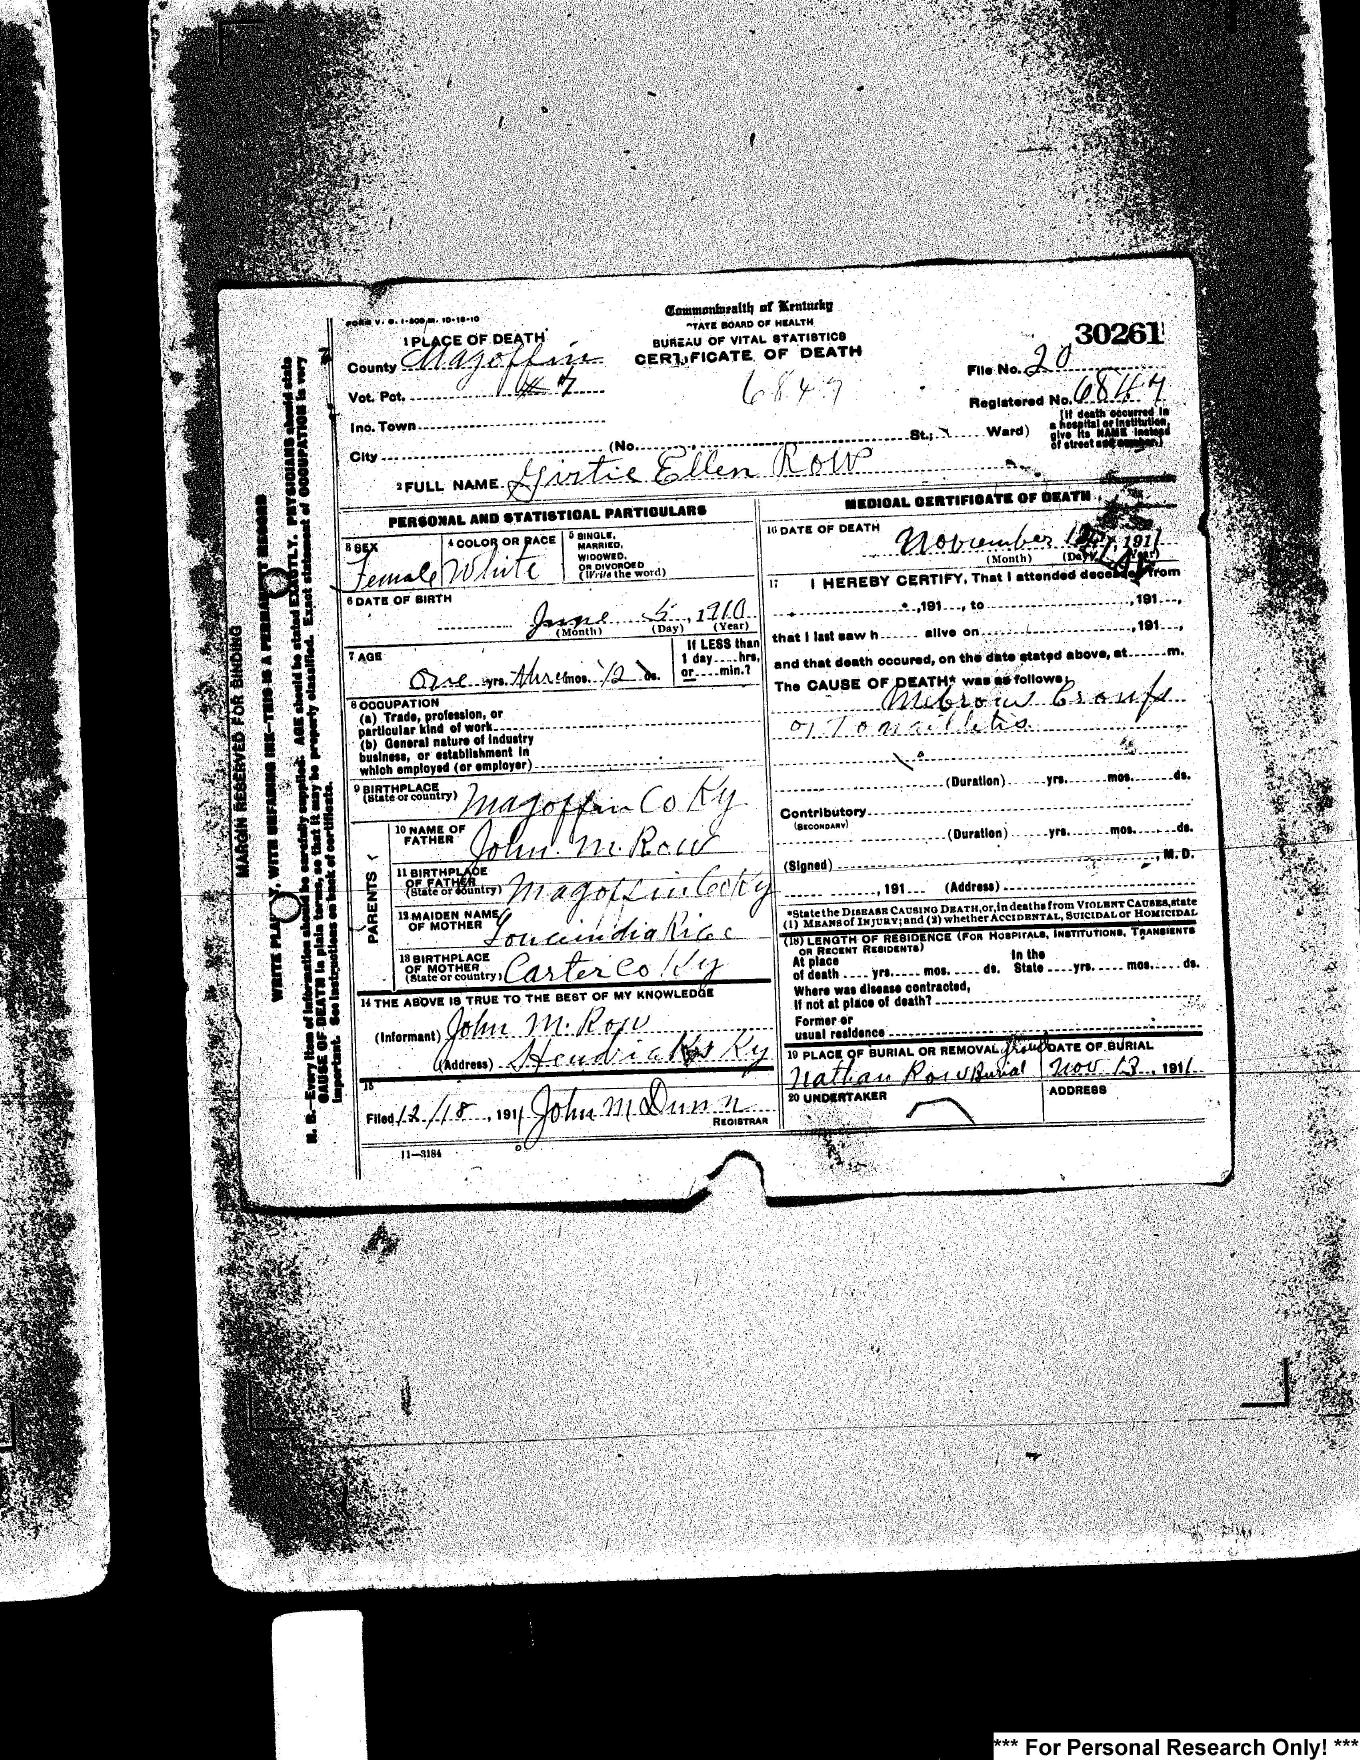 FORM V. S. 1-500 M. 10-18-10
Commonwealth of Kentucky
STATE BOARD OF HEALTH
BUREAU OF VITAL STATISTICS
CERTIFICATE OF DEATH
30261
1 PLACE OF DEATH
County Magoffin
Vot. Pct. 7
Inc. Town
City (No. St.; Ward)
6847
File No. 20
Registered No. 6847
(If death occurred in
a hospital or institution,
give its NAME instead
of street and number.)
2 FULL NAME Girtie Ellen Row
PERSONAL AND STATISTICAL PARTICULARS
3 SEX
Female
4 COLOR OR RACE
White
5 SINGLE,
MARRIED,
WIDOWED,
OR DIVORCED
(Write the word)
6 DATE OF BIRTH
June 5, 1910
(Month) (Day) (Year)
7 AGE
One yrs. three mos. 12 ds.
If LESS than
1 day....hrs,
or....min.?
8 OCCUPATION
(a) Trade, profession, or
particular kind of work
(b) General nature of industry
business, or establishment in
which employed (or employer)
9 BIRTHPLACE
(State or country) Magoffin Co Ky
PARENTS
10 NAME OF
FATHER John. M. Row
11 BIRTHPLACE
OF FATHER
(State or country) Magoffin Co Ky
12 MAIDEN NAME
OF MOTHER
13 BIRTHPLACE
OF MOTHER
(State or country) Carter Co Ky
14 THE ABOVE IS TRUE TO THE BEST OF MY KNOWLEDGE
(Informant) John M. Row
(Address) Ky
15
Filed 12/18, 1911 John M Dunn
REGISTRAR
11—3184
MEDICAL CERTIFICATE OF DEATH
16 DATE OF DEATH
November 12, 1911
(Month) (Day) (Year)
17 I HEREBY CERTIFY, That I attended deceased from
, 191..., to , 191...,
that I last saw h alive on , 191...,
and that death occured, on the date stated above, at m.
The CAUSE OF DEATH* was as follows:
Mebrow Croup
or Tonsilletis
(Duration) yrs. mos. ds.
Contributory
(SECONDARY)
(Duration) yrs. mos. ds.
(Signed) , M. D.
, 191 (Address)
*State the DISEASE CAUSING DEATH, or, in deaths from VIOLENT CAUSES, state
(1) MEANS of INJURY; and (2) whether ACCIDENTAL, SUICIDAL or HOMICIDAL
(18) LENGTH OF RESIDENCE (FOR HOSPITALS, INSTITUTIONS, TRANSIENTS
OR RECENT RESIDENTS)
At place In the
of death yrs. mos. ds. State yrs. mos. ds.
Where was disease contracted,
If not at place of death?
Former or
usual residence
19 PLACE OF BURIAL OR REMOVAL
Nathan Row Burial ground
DATE OF BURIAL
Nov 13, 1911
20 UNDERTAKER
ADDRESS
MARGIN RESERVED FOR BINDING
WRITE PLAINLY, WITH UNFADING INK—THIS IS A PERMANENT RECORD
N. B.—Every item of information should be carefully supplied. AGE should be stated EXACTLY. PHYSICIANS should state
CAUSE OF DEATH in plain terms, so that it may be properly classified. Exact statement of OCCUPATION is very
important. See instructions on back of certificate.
*** For Personal Research Only! ***